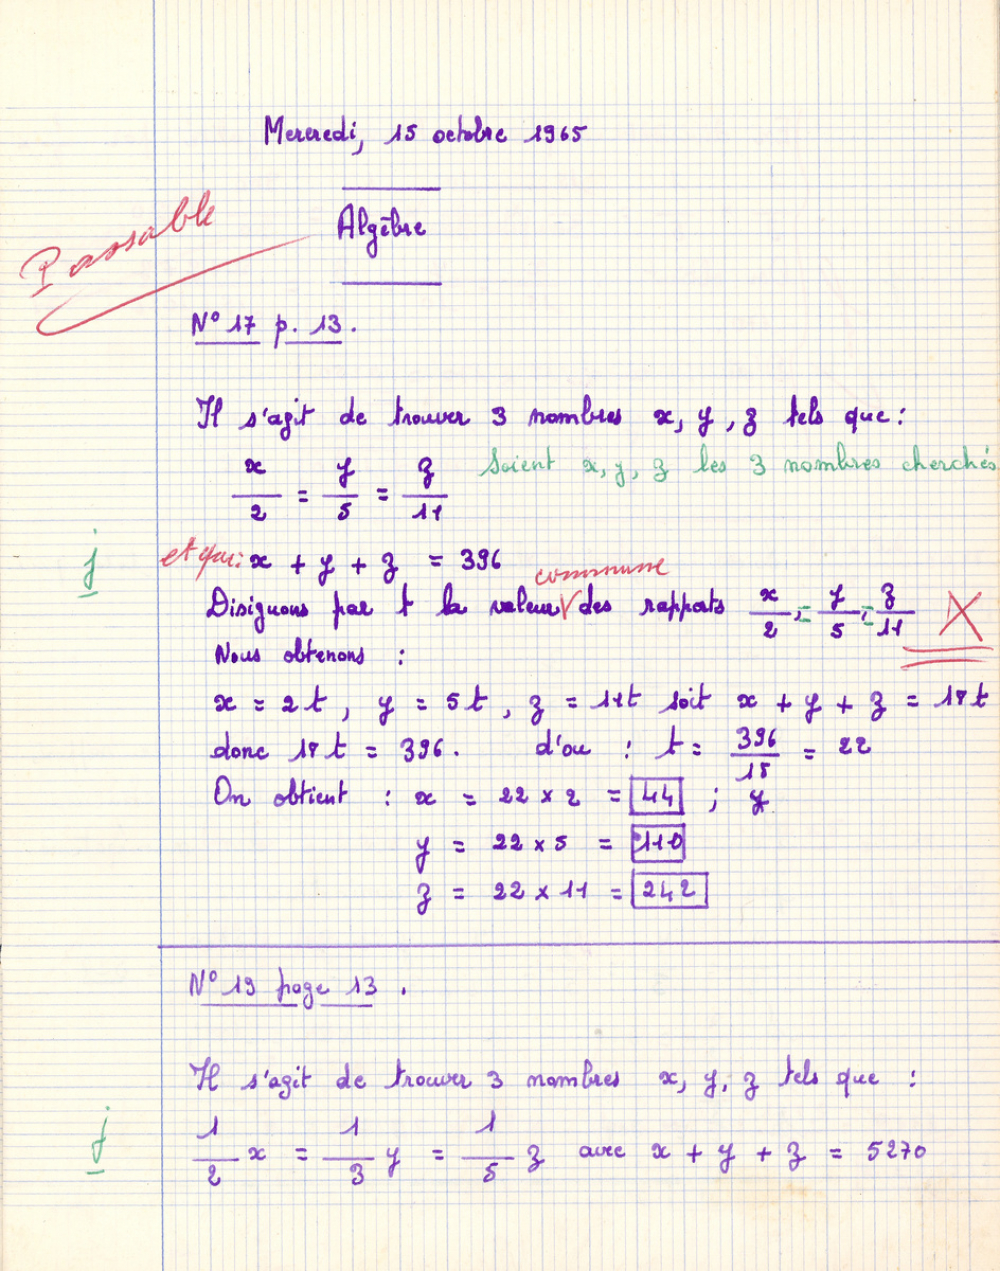 Mercredi, 15 octobre 1965
Passable
Algèbre
N° 17 p. 13.
Il s'agit de trouver 3 nombres x, y, z tels que :
x/2 = y/5 = z/11 Soient x, y, z les 3 nombres cherchés
j et que: x + y + z = 396
commune
Disignons par t la valeur √ des rapports x/2 = y/5 = z/11 X
Nous obtenons :
x = 2t, y = 5t, z = 11t soit x + y + z = 18t
donc 18t = 396. d'où : t = 396/18 = 22
On obtient : x = 22 x 2 = 44 ; y
y = 22 x 5 = 110
z = 22 x 11 = 242
N° 19 page 13.
Il s'agit de trouver 3 nombres x, y, z tels que :
j 1/2 x = 1/3 y = 1/5 z avec x + y + z = 5270